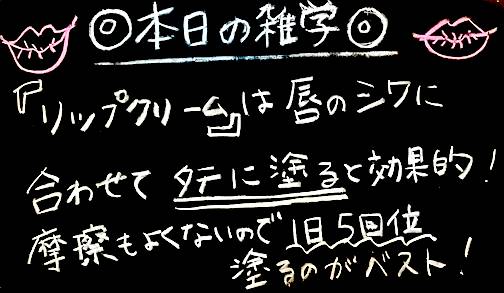 ◎本日の雑学◎
『リップクリーム』は唇のシワに
合わせてタテに塗ると効果的！
摩擦もよくないので1日5回位
塗るのがベスト！